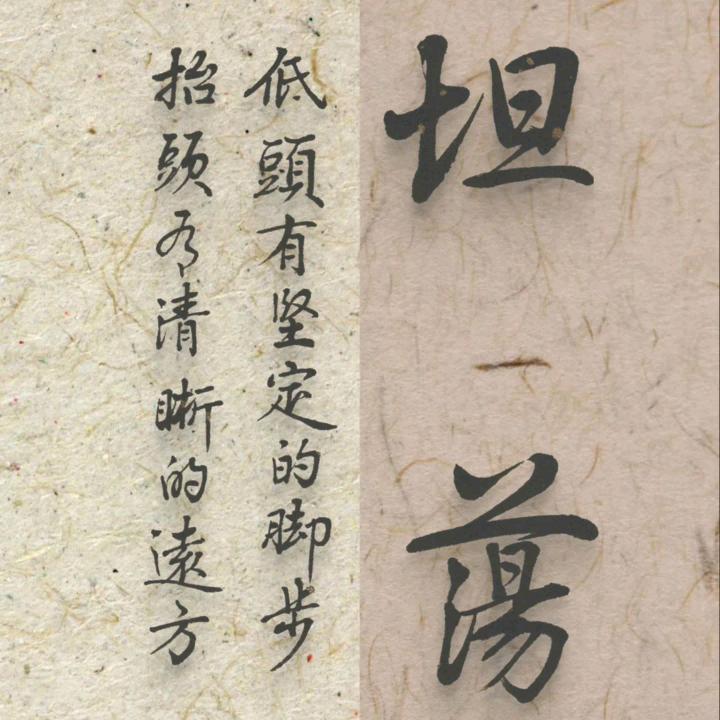 坦
蕩
低頭有堅定的脚步
抬頭有清晰的遠方